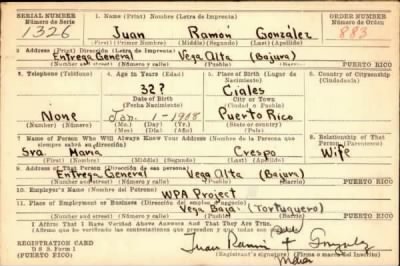 SERIAL NUMBER
Número de Serie
1326
1. Name (Print) Nombre (Letra de Imprenta)
Juan Ramón González
(First) (Primer Nombre) (Middle) (Segundo) (Last) (Apellido)
ORDER NUMBER
Número de Orden
883
2. Address (Print) Dirección (Letra de Imprenta)
Entrega General Vega Alta (Bajura)
(Number and street) (Número y calle) (Town) (Pueblo) PUERTO RICO
3. Telephone (Teléfono)
None
(Number) (Número)
4. Age in Years (Edad)
32?
Date of Birth
(Fecha Nacimiento)
Jan. 1-1908
(Mo.) (Day) (Yr.)
(Mes) (Día) (Año)
5. Place of Birth (Lugar de Nacimiento)
Ciales
City or Town
(Ciudad o Pueblo)
Puerto Rico
(State or country)
6. Country of Citizenship
(Ciudadanía)
7. Name of Person Who Will Always Know Your Address (Nombre de la Persona que siempre sabrá su dirección)
Sra. María Crespo
(First) (Middle) (Segundo) (Last) (Apellido)
8. Relationship of That Person (Parentesco)
Wife
9. Address of That Person (Dirección de esa persona)
Entrega General Vega Alta (Bajura)
(Number and street) (Número y calle) (Town) (Pueblo) PUERTO RICO
10. Employer's Name (Nombre del Patrono)
WPA Project
11. Place of Employment or Business (Dirección del empleo o negocio)
Vega Baja (Tortuguero)
(Number and street) (Número y calle) (Town) (Pueblo) PUERTO RICO
I Affirm That I Have Verified Above Answers and That They Are True.
REGISTRATION CARD
D. S. S. Form 1
(PUERTO RICO)
Juan Ramón González
Registrant's signature (Firma o marca del Inscrito)